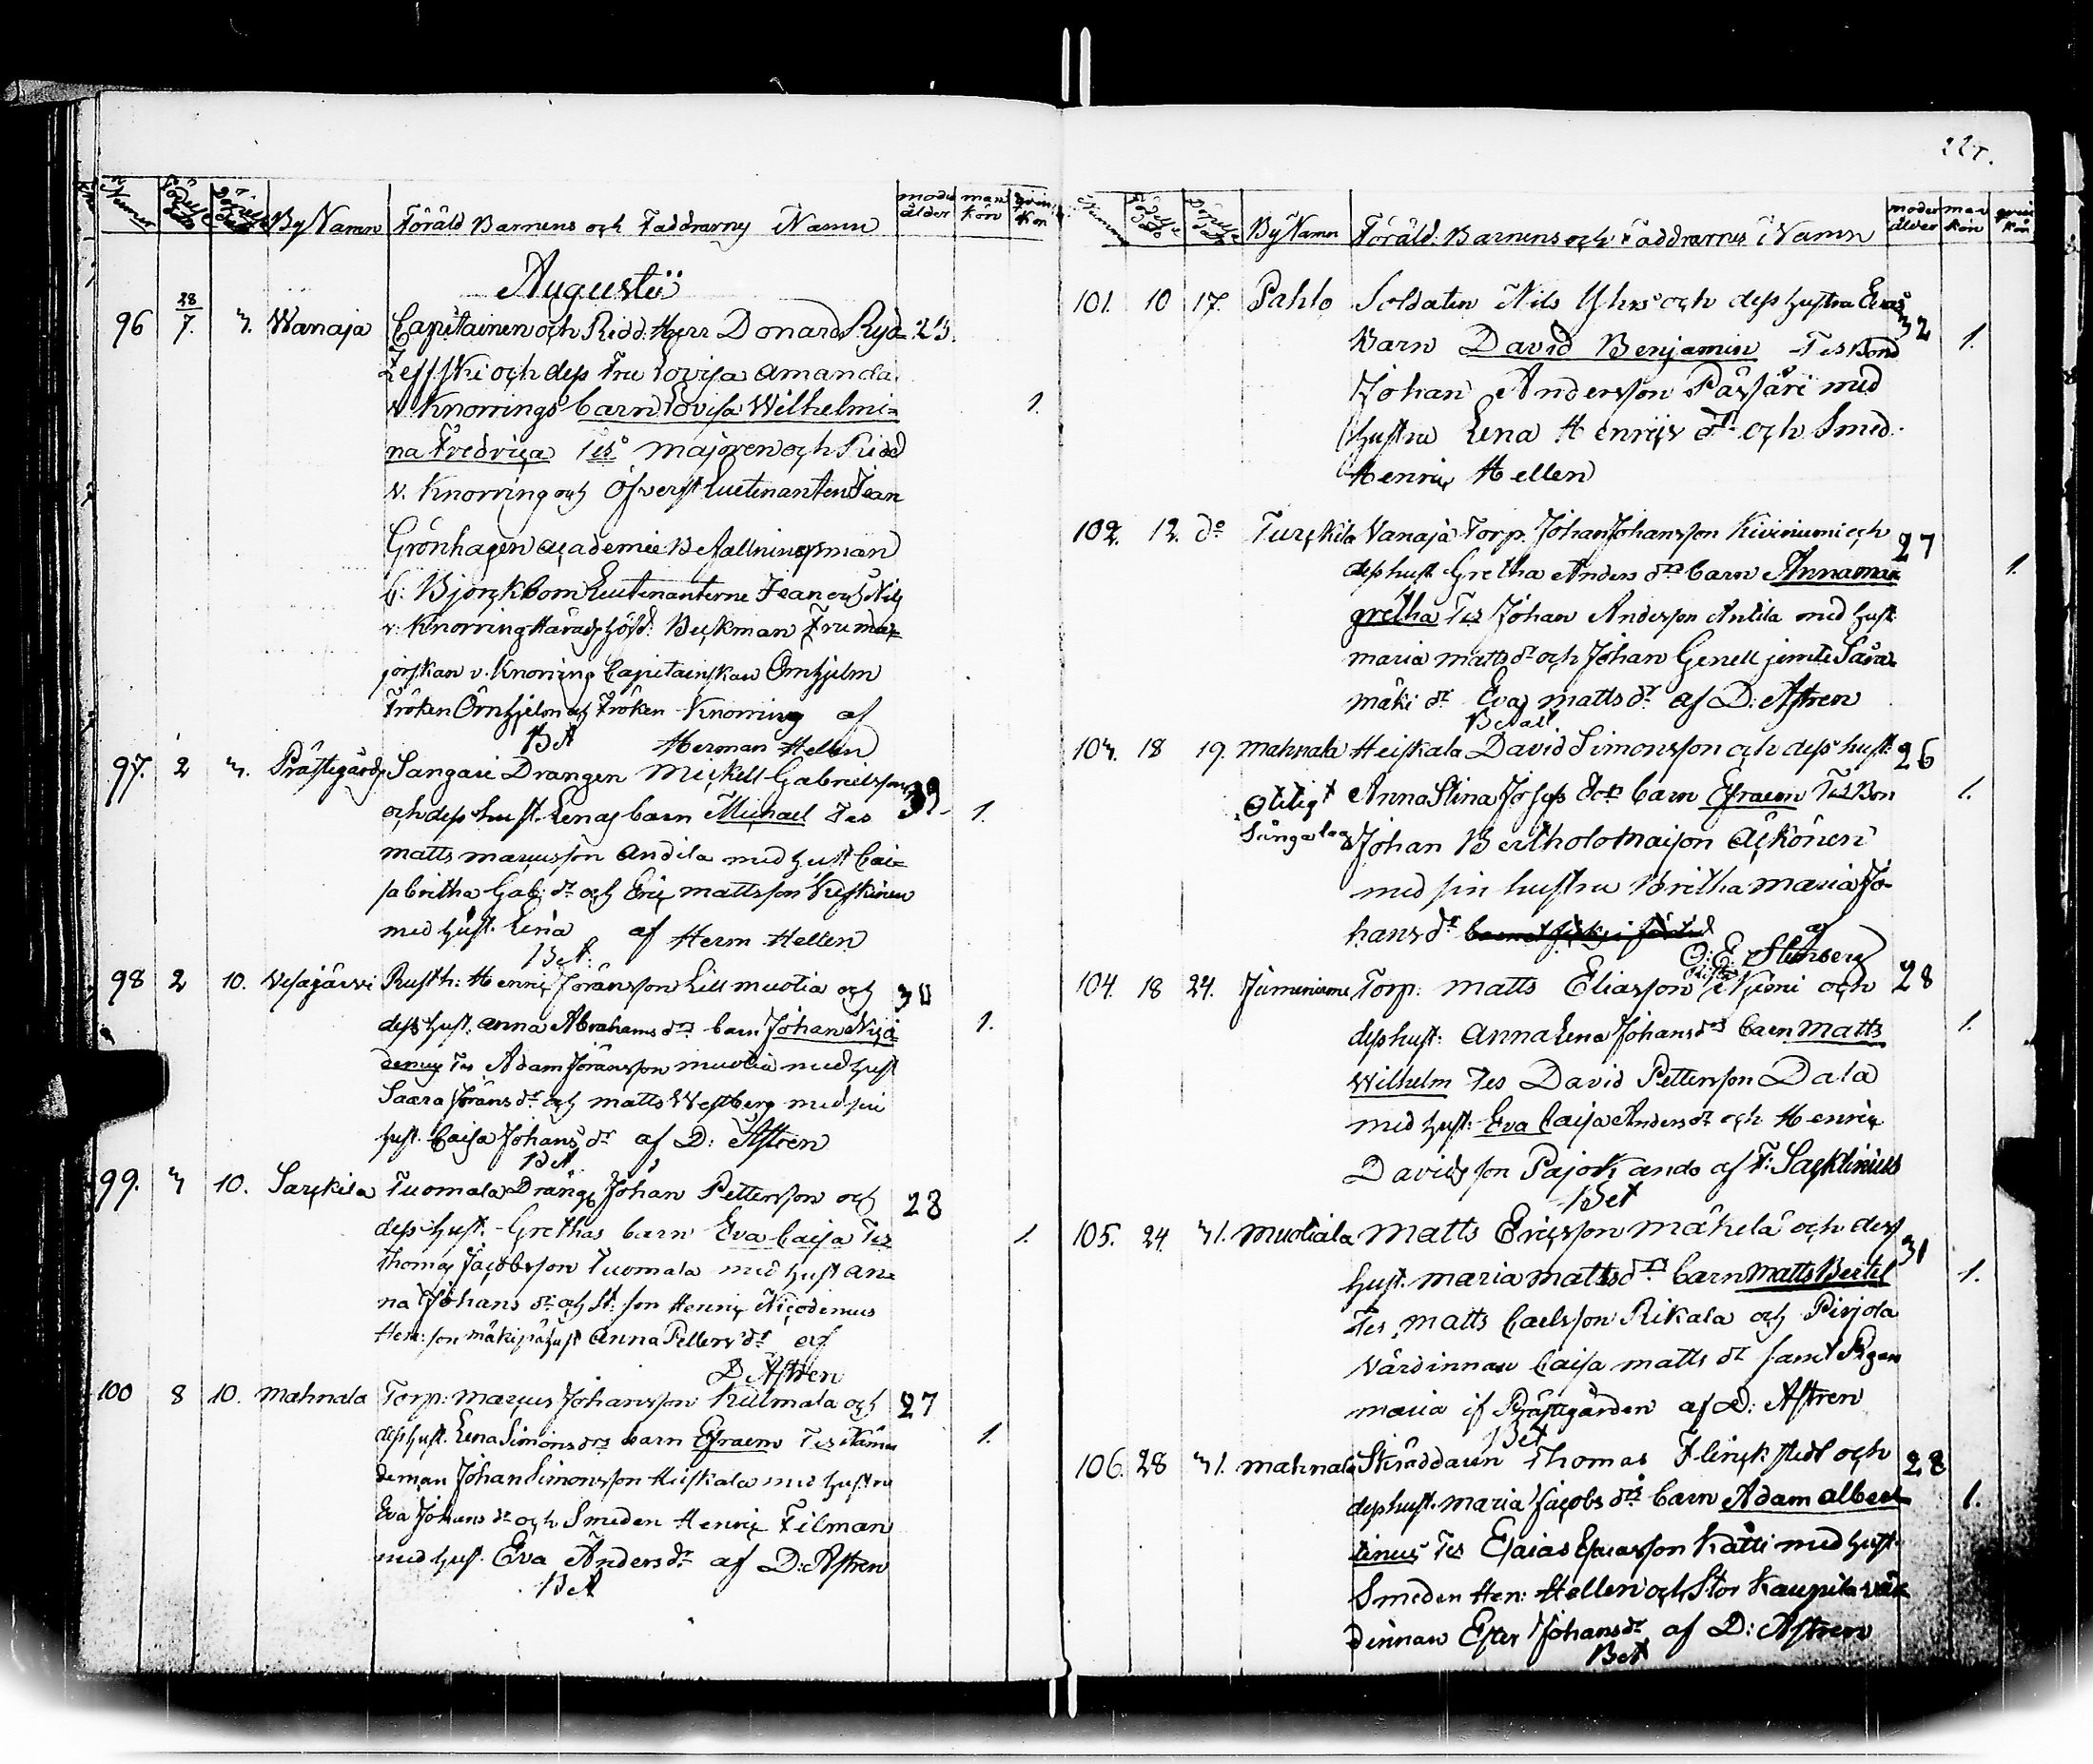 Augustii
Numer Födelse dato Döpelse dato By Namn Föräld Barnens och Faddrarnes Namn moder ålder man kön qvin kön
96 28/7. 3. Wanaja Capitainen och Ridd. Herr Donard Ryd= 23.
Zeffski och dess Fru Lovisa Amanda
v. Knorrings barn Lovisa Wilhelmi= 1.
na Fredrica Tes majoren och Ridd
v. Knorring och Öfverst Lieutenanten Jean
Grönhagen academie Befallningsman
C. Bjorckbom Lieutenanterne Jean och Nils
v. Knorring Häradshöfd: Beckman Fru ma=
jorskan v. Knorring Capitainskan Örnhjelm
Fröken Örnhjelm och Fröken Knorring af
Bet Herman Hellen
97. 2 3. Prästegårds Sangari Drangen Mickell Gabrielssons 39.
och dess hust. Lenas barn Michael Tes 1.
matts marcusson Andila med hust Cai=
sa britha Gab: dr och Eric mattsson Keskinen
med hust. Lena af Herm Hellen
Bet.
98 2 10. Vesajärvi Rusth: Henric Göransson Lill muotia och 30
dess hust. anna Abrahams drs barn Johan Nico= 1.
demus Tes Adam Göransson muotia med hust
Saara Görans dr och matts Westberg med sin
hust. Caisa Johans dr af D: Astren
Bet
99. 3 10. Sarckila Tuomala Dräng Johan Pettersson och 28
dess hust. Grethas barn Eva Caisa Tes 1.
Thomas Jacobsson Tuomala med hust an=
na Johans dr och St: son Henric Nicodemus
Hen: son mäkipä hust Anna Petters dr af
D Astren
100 8 10. mahnala Torp: marcus Johansson Kulmala och 27
dess hust. Lena Simons drs barn Efraem Tes Näm= 1.
deman Johan Simonsson Heiskala med hustru
Eva Johans dr och Smeden Henric Filman
med hust. Eva Anders dr af D: Astren
Bet
227.
Numer Födelse dato Döpelse dato By Namn Föräld. Barnens och Faddrarnes Namn moder ålder man kön qvin kön
101. 10 17. Pahlo Soldaten Nils Yhrs och dess hustru Evas 32
Barn David Benjamin Tes Bond 1.
Johan Andersson Pässäri med
hustru Lena Henrics dr och Smed.
Henric Hellen
102. 12. do Turckila Vanaja Torp. Johan Johansson Kiviniemi och 27
dess hust. Gretha Anders drs barn Anna mar 1.
gretha Tes Johan Andersson Antila med hust
maria matts dr och Johan Genell jemte Sara
mäki dr Eva matts dr af D: Astren
Betalt
103. 18 19. mahnala Heiskala David Simonsson och dess hust. 26
Anna Stina Josefs drs barn Efraem Tes Bon 1.
Johan Bertholomaison Äckönen
med sin hustru Britha maria Jo-
hans dr af
104. 18 24. Torp: matts Eliasson och 28
dess hust: Anna Lena Johans drs barn matts 1.
Wilhelm Tes David Pettersson Dala
med hust. Eva Caisa Anders dr och Henric
Davidsson Pajok ando af
Bet
105. 24. 31. muotiala Matts Ericsson mäkelä och dess 31
hust. maria matts drs barn Matts Bertel 1.
Tes matts Carlsson Rikala och Pirjola
värdinnan Caisa matts dr samt Pigan
maria if Prästgården af D: Astren
Bet
106. 28 31. mahnala Skräddaren Thomas Flinckstedt och 28
dess hust. maria Jacobs drs barn Adam alber 1.
tinus Tes Esaias Esaiasson Kätti med hust.
Smeden Hen: Hellen och Stor Kaupila vär
dinnan Ester Johans dr af D: Astren
Bet